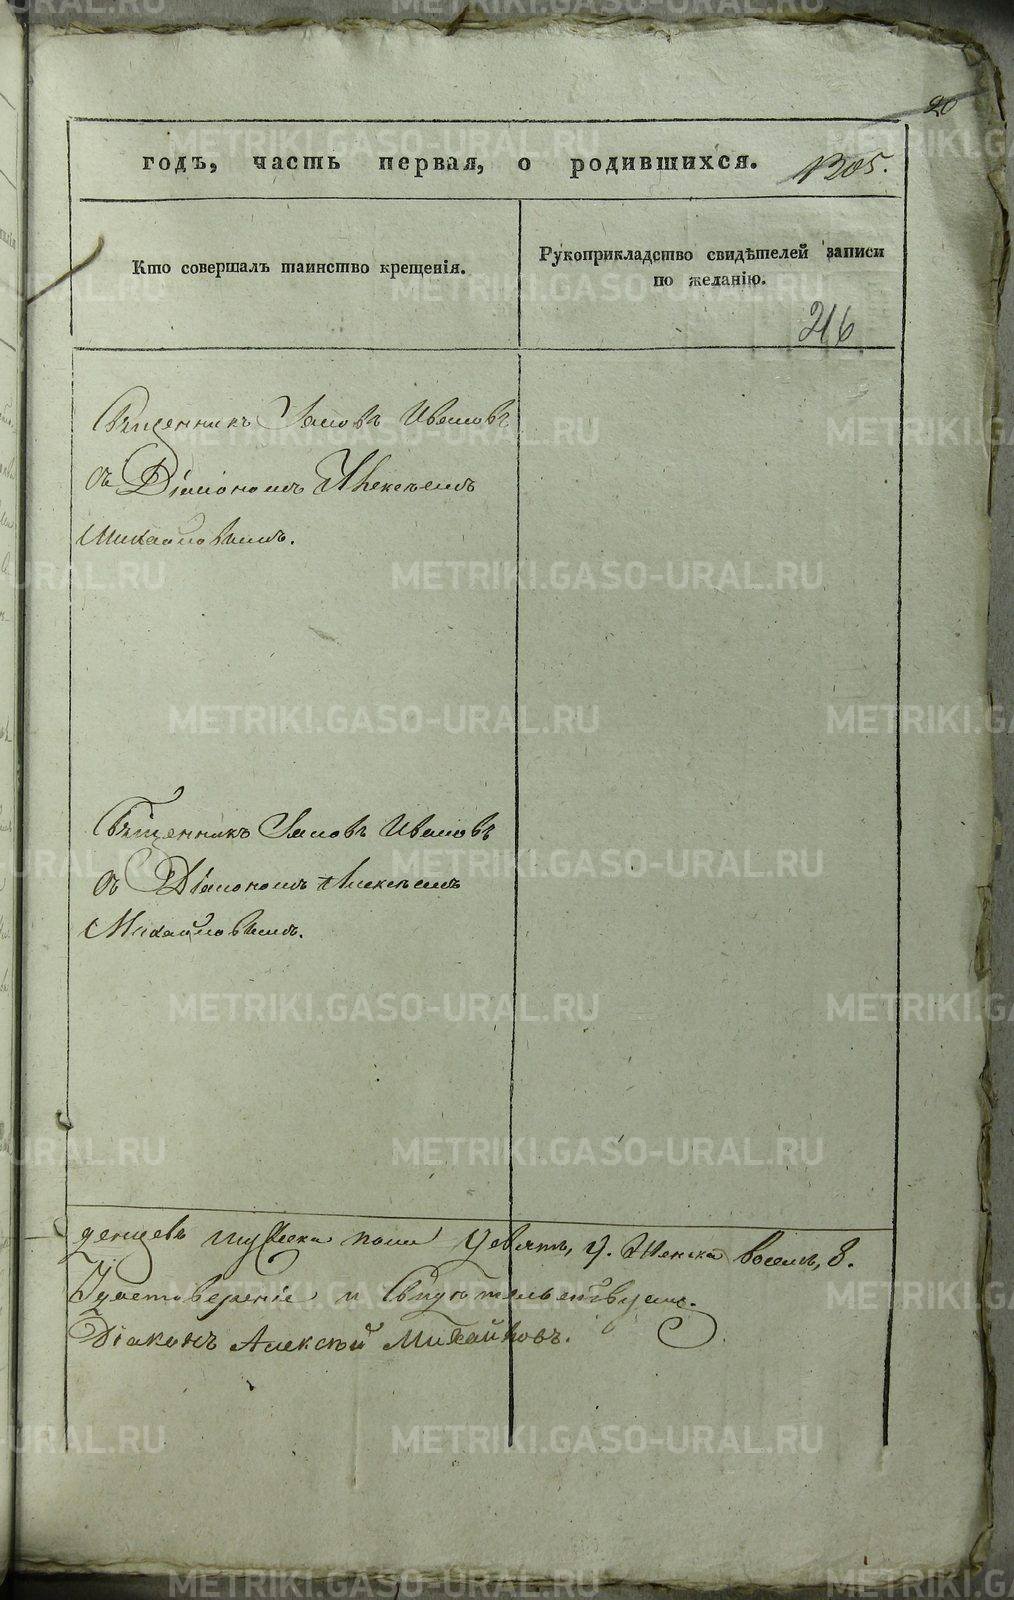 20
годъ, часть первая, о родившихся.
1205.
Кто совершалъ таинство крещенія.
Рукоприкладство свидѣтелей записи
по желанію.
216
Священникъ Іаковъ Ивановъ
съ Діакономъ Алексѣемъ
Михайловымъ.
Священникъ Іаковъ Ивановъ
съ Діакономъ Алексѣемъ
Михайловымъ.
денцевъ мужеска пола девять, 9. Женска восемь, 8.
удостовереніе и свидѣтельствуемъ.
Діаконъ Алексѣй Михайловъ.
METRIKI.GASO-URAL.RU